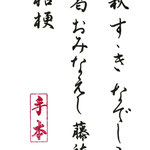 萩 すゝき なでし
葛 おみなえし 藤
桔梗
手本